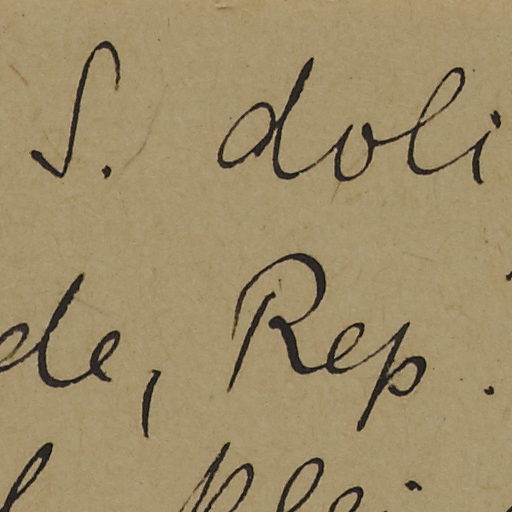 S. doli
de, Rep.